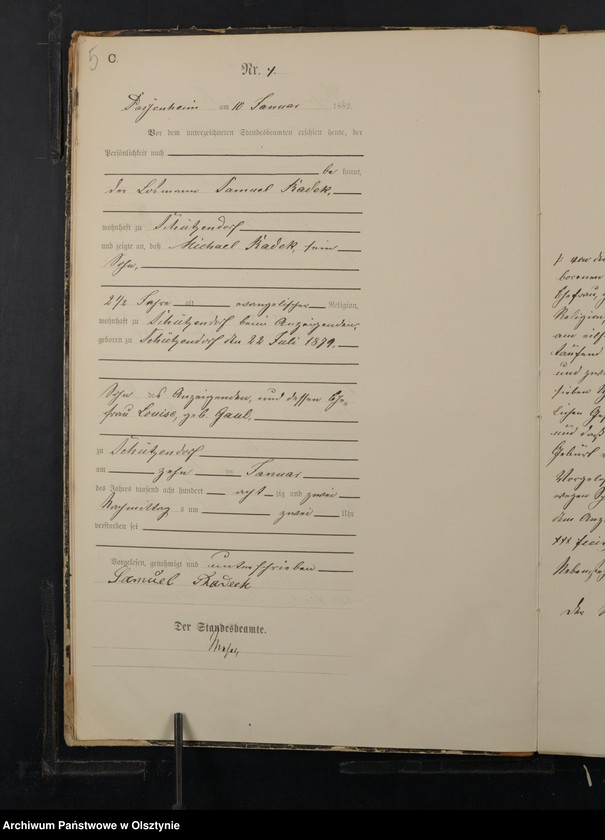 5
C.
Nr. 7.
Passenheim am 10 Januar 1882.
Vor dem unterzeichneten Standesbeamten erschien heute, der
Persönlichkeit nach
be kannt,
der Losmann Samuel Kadek,
wohnhaft zu Schützendorf
und zeigte an, daß Michael Kadek, sein
Sohn,
2 1/2 Jahre alt evangelischer Religion,
wohnhaft zu Schützendorf beim Anzeigenden,
geboren zu Schützendorf den 22 Juli 1879,
Sohn des Anzeigenden, und dessen Ehe-
frau Louise, geb. Gaul.
zu Schützendorf
am zehn ten Januar
des Jahres tausend acht hundert acht zig und zwei
Nachmittag s um zwei Uhr
verstorben sei
Vorgelesen, genehmigt und unterschrieben
Samuel Kadeck
Der Standesbeamte.
von der
borenen
Ehefrau,
Religion
am
tausend
und
sieben
lichen
und daß
Geburt
Vorgele
wegen
dem Anz
Nebenreg
Der
Archiwum Państwowe w Olsztynie